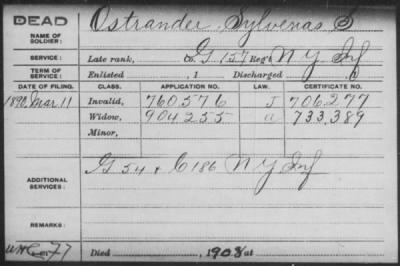 DEAD
NAME OF SOLDIER: Ostrander, Sylvenas S
SERVICE: Late rank, Co. G 157 Reg't N Y Inf
TERM OF SERVICE: Enlisted , 1 Discharged , 1
DATE OF FILING. CLASS. APPLICATION NO. LAW. CERTIFICATE NO.
1890 Mar. 11 Invalid, 760576 J 706277
Widow, 904255 a 733,389
Minor,
ADDITIONAL SERVICES: G 54 & C 186 N Y Inf
REMARKS:
Died , 1908 at